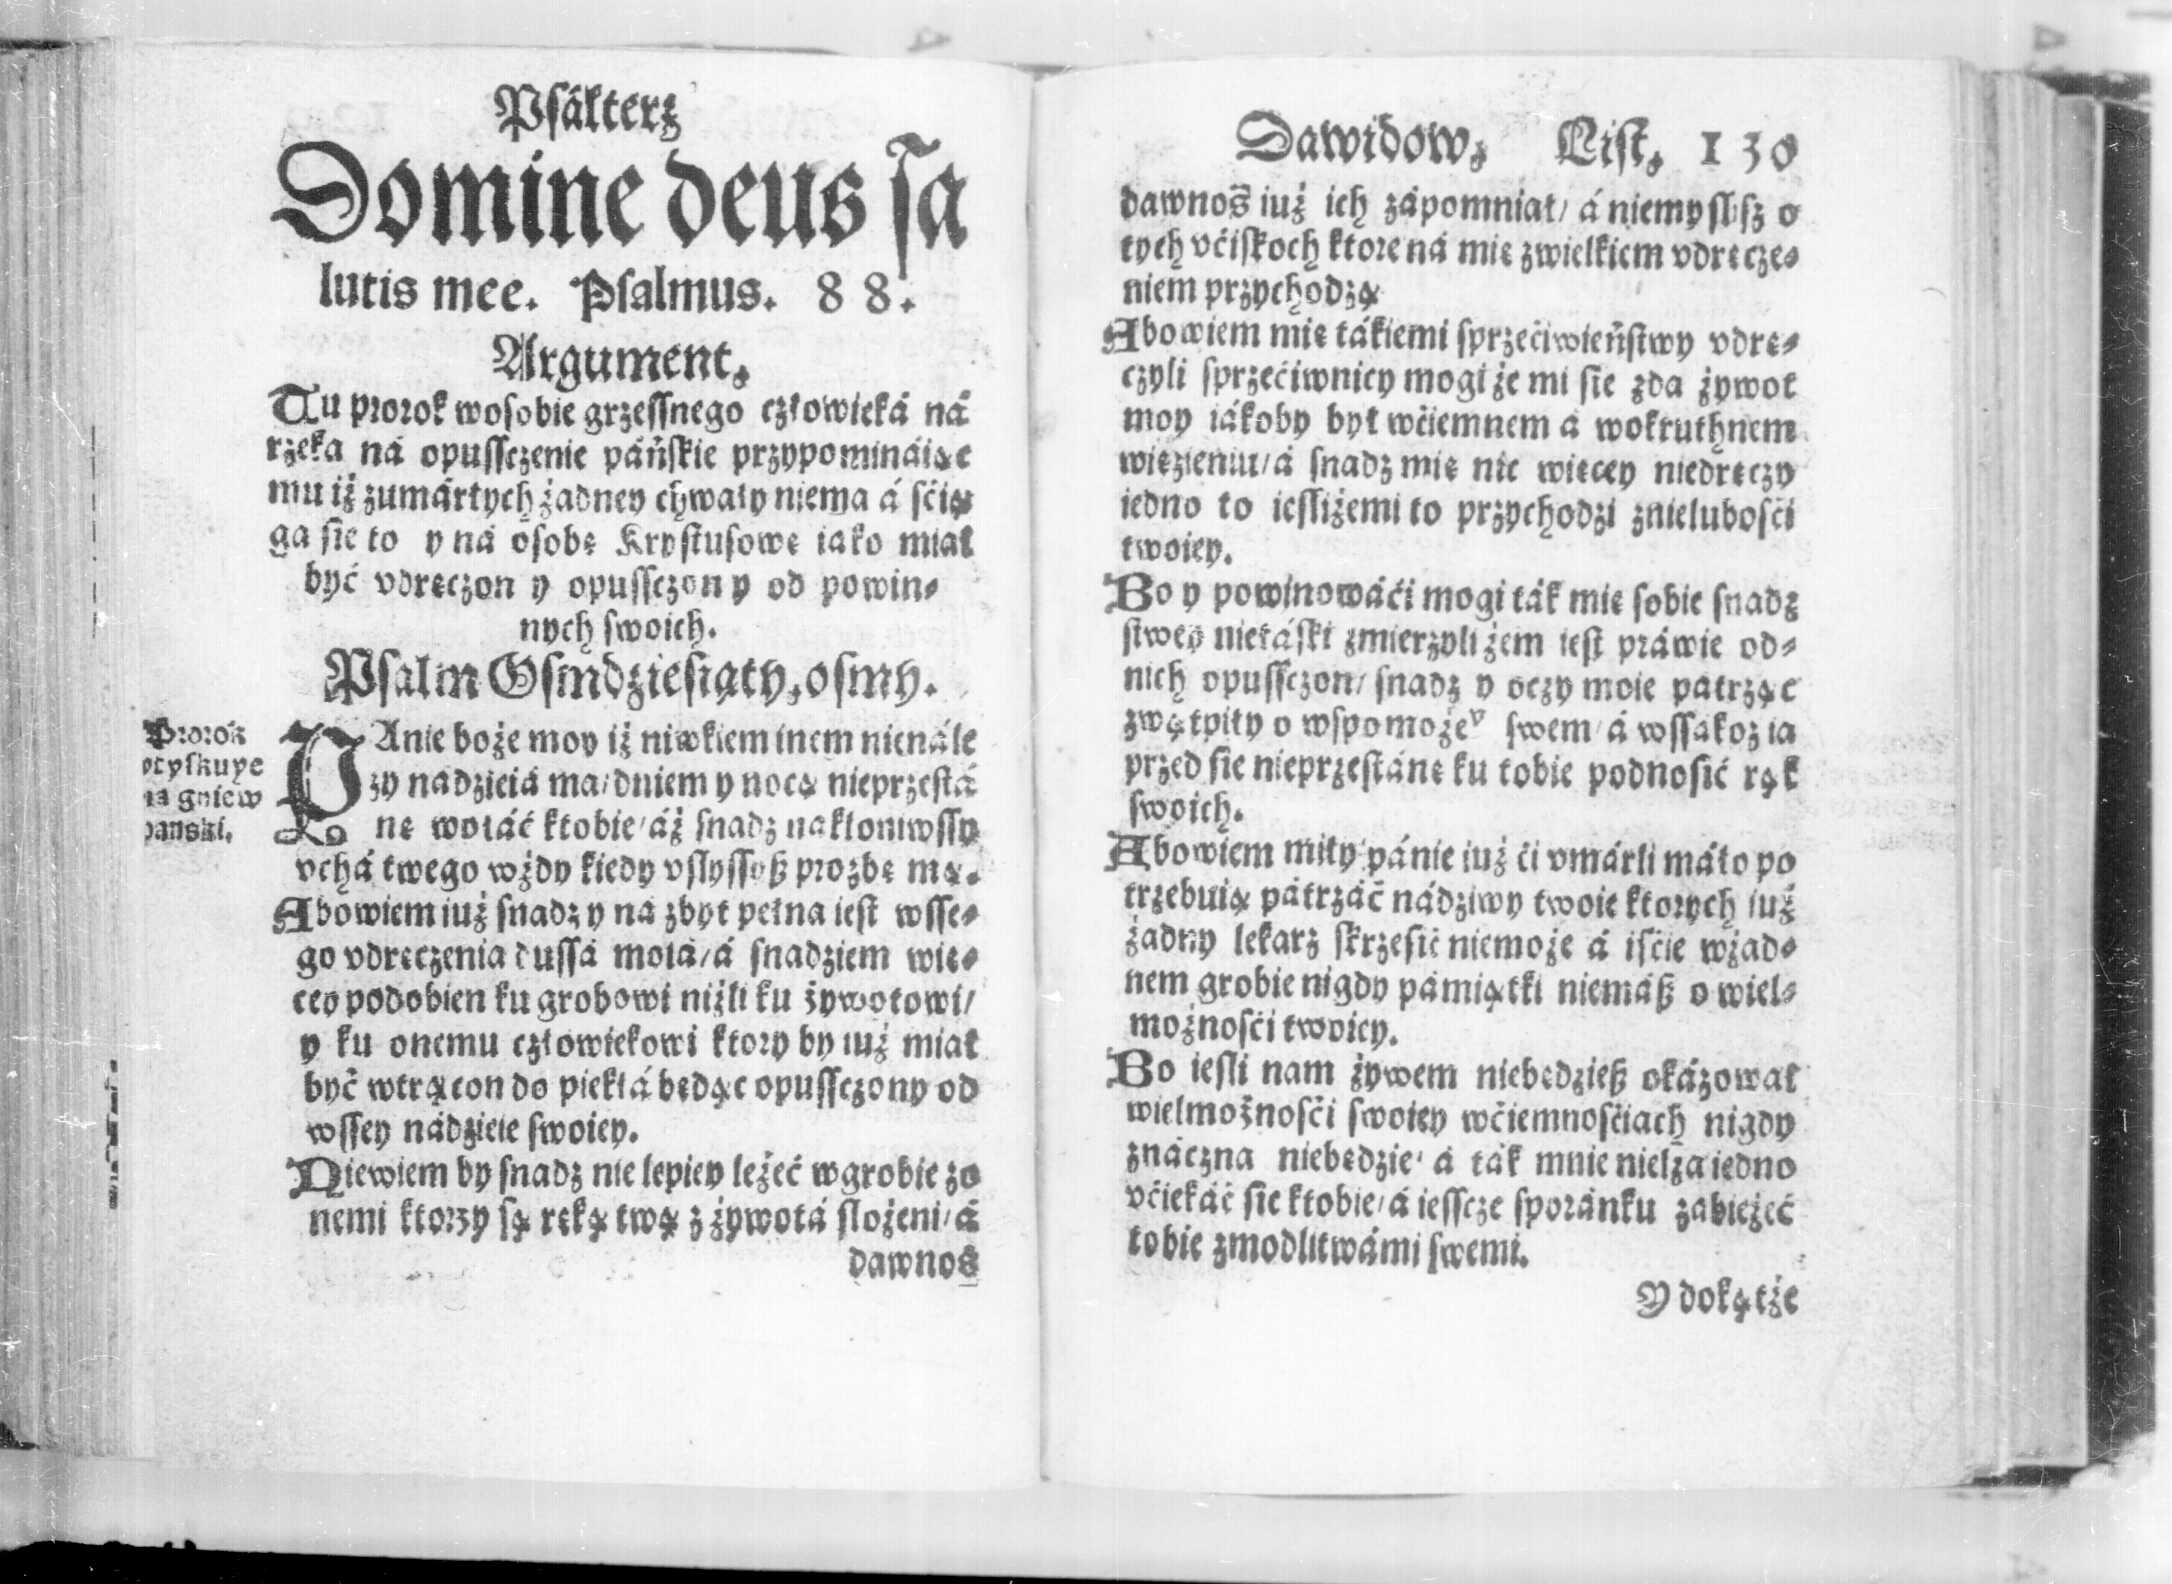 Psálterz
Domine deus sa
lutis mee. Psalmus. 88.
Argument.
Tu prorok wosobie grzessnego człowieká ná
rzeka ná opussczenie páńskie przypomináiąc
mu iż zumártych żadney chwały niema á sćią
ga sie to y ná osobę Krystusowę iako miał
być vdręczon y opussczony od powin⸗
nych swoich.
Psalm Osmdziesiąty, osmy.
Prorok
otyskuye
na gniew
panski.
PAnie boże moy iż niwkiem inem nienále
zy nadzieiá ma/ dniem y nocą nieprzestá
nę wołáć ktobie/ áż snadz nakłoniwssy
vchá twego wżdy kiedy vslyssoß prozbę mą.
Abowiem iuż snadz y ná zbyt pełna iest wsse⸗
go vdręczenia dussá moiá/ á snadziem wię⸗
cey podobien ku grobowi niżli ku żywotowi/
y ku onemu człowiekowi ktory by iuż miał
być wtrącon do piekłá będąc opussczony od
wssey nádzieie swoiey.
Niewiem by snadz nie lepiey leżeć wgrobie zo
nemi ktorzy są ręką twą z żywotá slożeni/ á
dawnoś
Dawidow, List. 130
dawnoś iuż ich zápomniał/ á niemyslisz o
tych vćiskoch ktore ná mię zwielkiem vdręcze⸗
niem przychodzą
Abowiem mię tákiemi sprzećiwieństwy vdrę⸗
czyli sprzećiwnicy mogi że mi sie zda żywot
moy iákoby był wćiemnem a wokruthnem
więzieniu/ á snadz mię nic więcey niedręczy
iedno to iesliżemi to przychodzi znielubosći
twoiey.
Bo y powinowáći mogi ták mię sobie snadz
stwey niełáski zmierzyli żem iest práwie od⸗
nich opussczon/ snadz y oczy moie patrząc
zwątpiły o wspomożeᵛ swem/ á wssakoz ia
przed sie nieprzestánę ku tobie podnosić rąk
swoich.
Abowiem miły pánie iuż ći vmárli máło po
trzebuią pátrzáć nádziwy twoie ktorych iuż
żadny lekarz skrzesić niemoże á isćie wżad⸗
nem grobie nigdy pámiątki niemáß o wiel⸗
możnosći twoiey.
Bo iesli nam żywem niebędzieß okázował
wielmożnosći swoiey wćiemnosćiach nigdy
znáczna niebędzie/ á ták mnie nielza iedno
vćiekáć sie ktobie/ á iessceze sporánku zabieżeć
tobie zmodlitwámi swemi.
Y dokątże